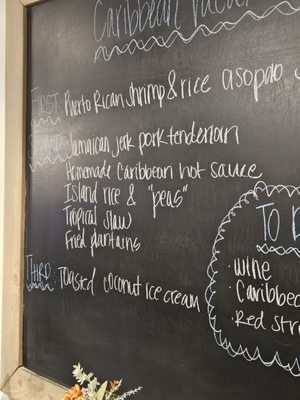 Caribbean
FIRST: Puerto Rican shrimp & rice asopao
Jamaican jerk pork tenderloin
Homemade Caribbean hot sauce
Island rice & "peas"
Tropical slaw
Fried plantains
THIRD: Toasted coconut ice cream
TO
· WINE
· Caribbean
· Red